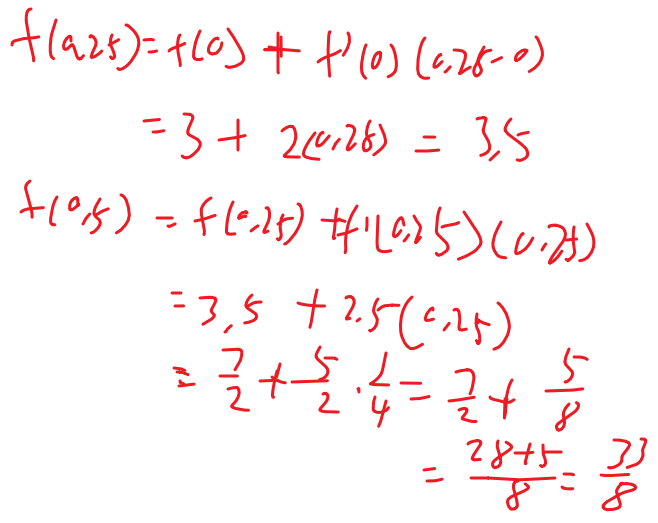 f(0,25) = f(0) + f'(0) (0,25-0)
= 3 + 2(0,25) = 3,5
f(0,5) = f(0,25) + f'(0,25)(0,25)
= 3,5 + 2.5(0,25)
= 7/2 + 5/2 · 1/4 = 7/2 + 5/8
= 28+5/8 = 33/8